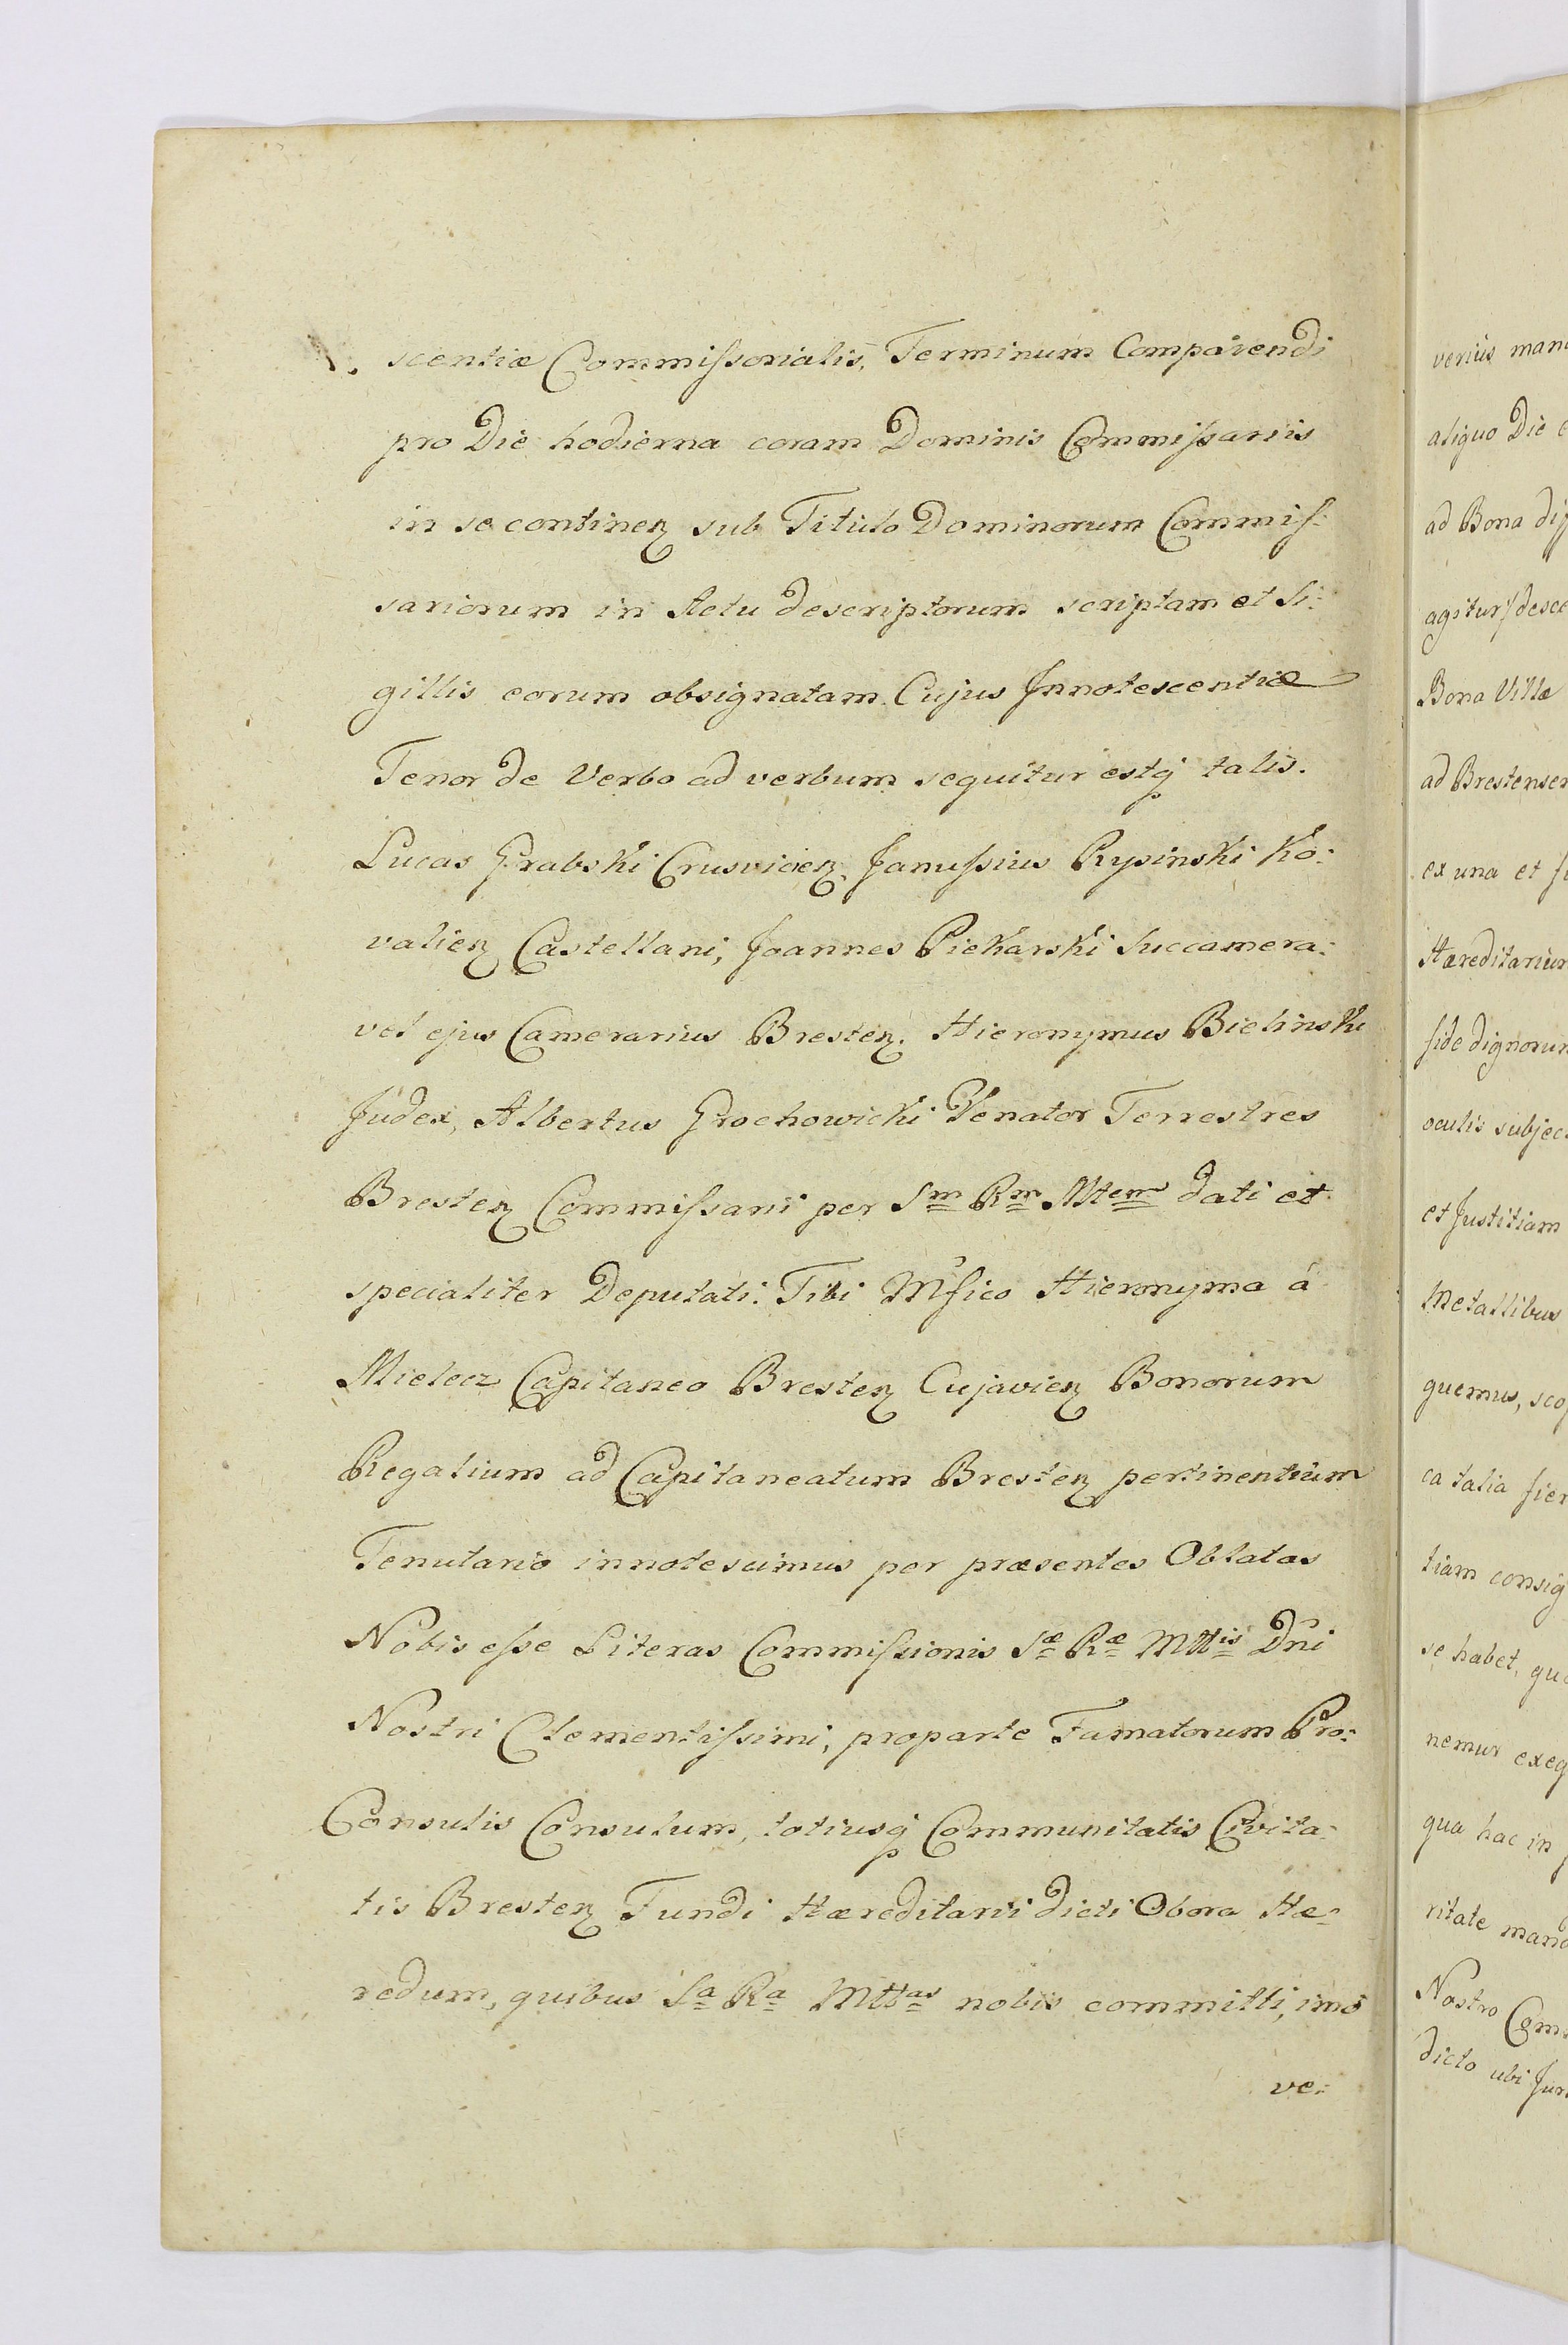 scentiæ Commiſsorialis, Terminum Comparendi
pro Die hodierna coram Dominis Commiſsariis
in se continenȝ sub Titulo Dominorum Commiſ:
sariorum in Actu descriptorum scriptam et Si:
gillis eorum obsignatam. Cujus Innotescentiæ
Tenor de Verbo ad verbum sequitur estq̨ talis.
Lucas Grabski Crusvicienȝ. Januſsius Rysinski Ko:
valienȝ Castellani, Joannes Piekarski Succamera:
vel ejus Camerarius Brestenȝ. Hieronymus Bielinski
Judex, Albertus Grochowicki Venator Terrestres
Brestenȝ Commiſsarii per Sm Rm Mttem dati et
specialiter Deputati. Tibi Mfico Hieronyma á
Mielecz Capitaneo Brestenȝ Cujavienȝ Bonorum
Regalium ad Capitaneatum Brestenȝ pertinentium
Tenutario innotescimus per præsentes Oblatas
Nobis eſse Literas Commiſsionis Sæ Ræ Mttis Dni
Nostri Clementiſsimi, proparte Famatorum Pro:
Consulis Consulum, totiusq̨ Communitatis Civita:
tis Brestenȝ Fundi Hæreditarii dicti Obora Hæ:
redum, quibus Sa Ra Mttas nobis committi, imo
ve:
verius man
aliquo Die
ad Bona
agitur/ desce
Bona Villæ
ad Brestensem
ex una et
Hæreditarium
fide dignorum
oculis subjec
et Justitiam
Metallibus
quemus,
ea talia fier
tiam consig
se habet,
nemur exeq
qua hac in
ritate mand
Nostro Com
dicto ubi Jur